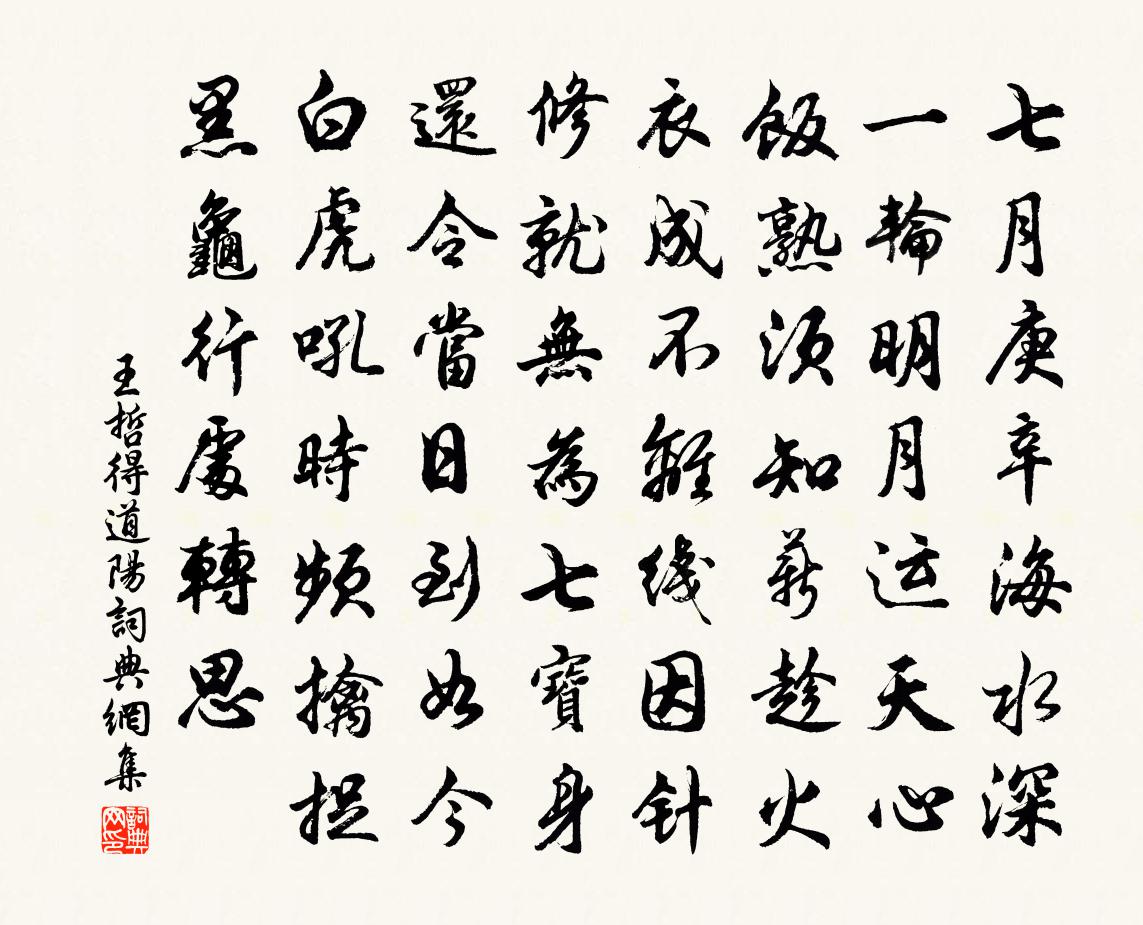 七月庚辛海水深
一輪明月运天心
飯熟須知薪趁火
衣成不離綫因针
修就無為七寶身
還令當日到如今
白虎吼時頻擒捉
黑龜行處轉思
王哲得道陽詞典網集
詞典网印